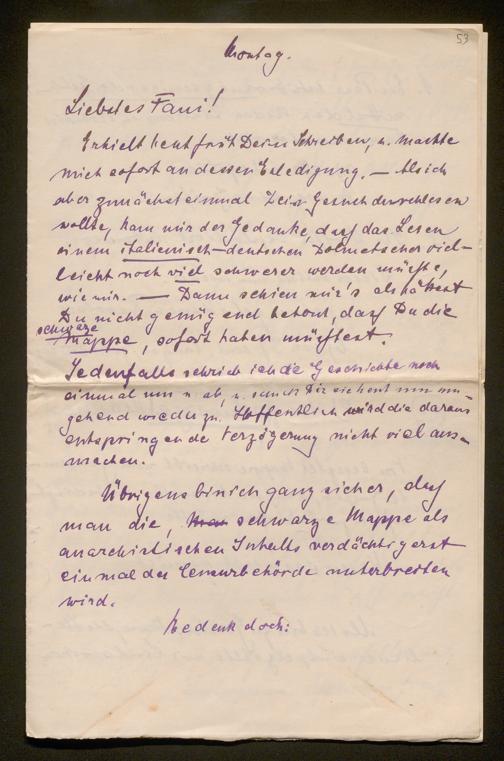 53
Montag.
Liebstes Fani!
Erhielt heut früh Dein Schreiben, u. machte
mich sofort an dessen Erledigung. — Als ich
aber zunächst einmal Dein Gesuch durchlesen
wollte, kam mir der Gedanke, daß das Lesen
einem italienisch-deutschen Dolmetscher viel-
leicht noch viel schwerer werden müßte,
wie mir. — Dann schien mir's als hättest
Du nicht genügend betont, daß Du die
schwarze
Mappe, sofort haben müßtest.
Jedenfalls schrieb ich die Geschichte noch
einmal um u. ab, u. sende Dir sie heut nun um-
gehend wieder zu. Hoffentlich wird die daraus
entspringende Verzögerung nicht viel aus-
machen.
Übrigens bin ich ganz sicher, daß
man die, man schwarze Mappe als
anarchistischen Inhalts verdächtig erst
einmal der Censurbehörde unterbreiten
wird.
Bedenk doch: